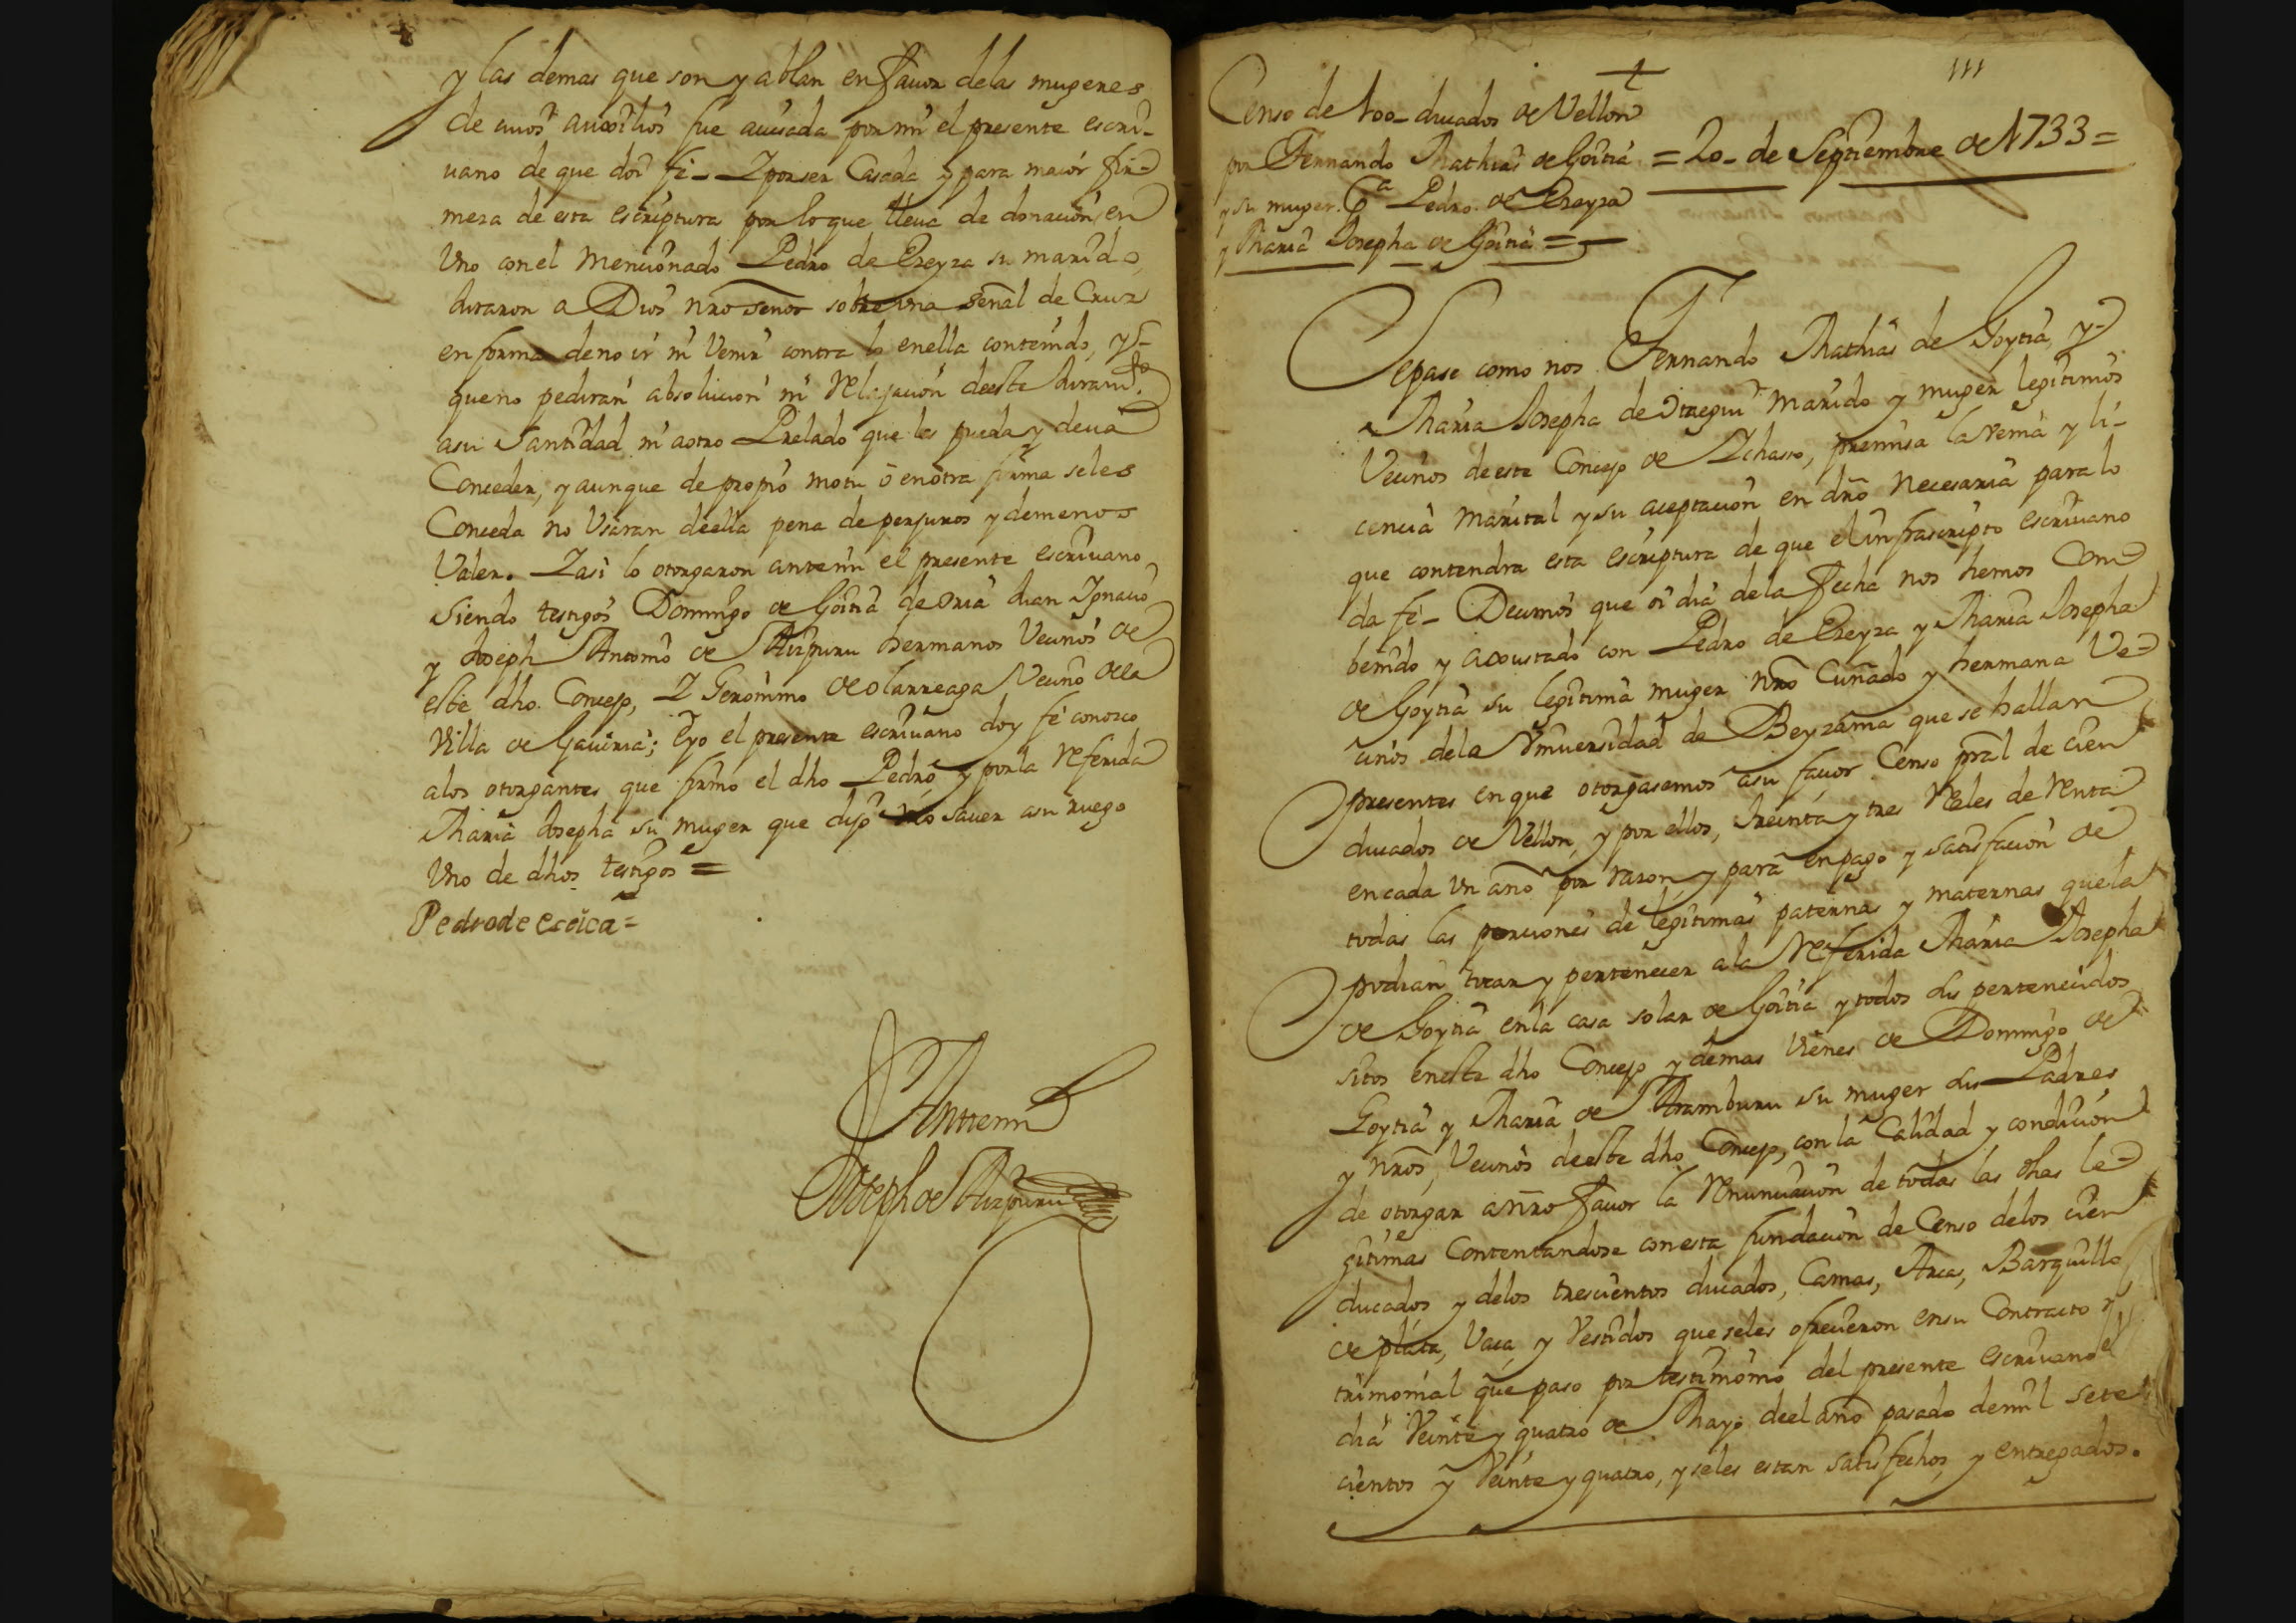 y las demas que son y ablan en favor delas mugeres
de cuios auxilios fue auisada por mi el presente escri-
uano de que doi fe - Y por ser Casada y para maior fir-
meza de esta escriptura por lo que lleua de donacion, en
Uno con el mencionado Pedro de Ereyza su marido,
Juraron a Dios nro Señor sobre una Señal de Cruz
en forma de no ir ni Venir contra lo enella contenido, y
que no pediran absolucion ni relajacion deeste Juramto
asu Santidad ni aotro Prelado que les pueda y deua
Conceder, y aunque de propio motu ô en otra forma seles
Conceda no Usaran deella pena de perjuros y de menos
Valer. Y asi lo otorgaron antemi el presente escriuano
siendo testigos Domingo de Goitia de Oria Juan Ignacio
y Joseph Antonio de Aizpuru hermanos Vecinos de
este dho Concejo, Y Geronimo de Olarreaga Vecino dela
Villa de Gauiria; E yo el presente escriuano doy fe conozco
alos otorgantes que firmo el dho Pedro, y por la referida
Maria Josepha su muger que dijo no sauer asu ruego
Uno de dhos testigos =
Pedro de ereica =
Antemi
Joseph de Aizpuru
111
Censo de 100 - ducados de Vellon
por Fernando Mathias de Goitia
y su muger. Ca Pedro de Ereyza
y Maria Josepha de Goitia =
= 20 - de Septiembre de 1733 =
Sepase como nos Fernando Mathias de Goytia, y
Maria Josepha de Oraegui marido y muger legitimos
Vecinos de este Concejo de Ichaso, premisa la Venia y li-
cencia marital y su aceptacion en dro necesaria para lo
que contendra esta escriptura de que el infrascripto escriuano
da fe - Decimos que oi dia dela fecha nos hemos Con
benido y axustado con Pedro de Ereyza y Maria Josepha
de Goytia su legitima muger nro Cuñado y hermana Ve
cinos dela Universidad de Beyzama que se hallan
presentes en que otorgasemos asu fauor Censo pral de cien
ducados de Vellon, y por ellos, treinta y tres Reales de renta
en cada Un año por razon, y para en pago y satisfacion de
todas las porciones de legitimas paternas y maternas que la
podian tocar y pertenecer ala Referida Maria Josepha
de Goytia enla casa solar de Goitia y todos sus pertenecidos
sitos eneste dho Concejo y demas Vienes de Domingo de
Goytia y Maria de Aramburu su muger sus Padres
y nros, Vecinos deeste dho Concejo, con la Calidad y condicion
de otorgar anro fauor la renunciacion de todas las dhas le
gitimas Contentandose con esta fundacion de Censo delos cien
ducados y delos trescientos ducados, Camas, Arca, Barquillo
de plata, Vaca, y Vestidos que seles ofrecieron ensu Contracto
trimonial que paso por testimonio del presente escriuano el
dia Veinte y quatro de Mayo deel año pasado demil sete
cientos y Veinte y quatro, y seles estan satisfechos, y entregados.